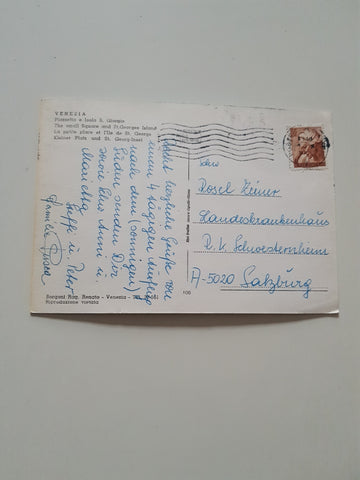 VENEZIA
Piazzetta e Isola S. Giorgio
The small Square and St. Georges Island
La petite place et l'Ile de St. George
Kleiner Platz und St. Georg-Insel
herzliche Grüße von
einem 4 tägigen Ausflug
nach dem (sonnigen)
Süden senden Dir
sowie Anni u.
Marietta
Steffi u. Peter
Familie
Rosel
Landeskrankenhaus
R. K. Schwesternheim
A-5020 Salzburg
Bargoni Rag. Renato - Venezia -
Riproduzione vietata